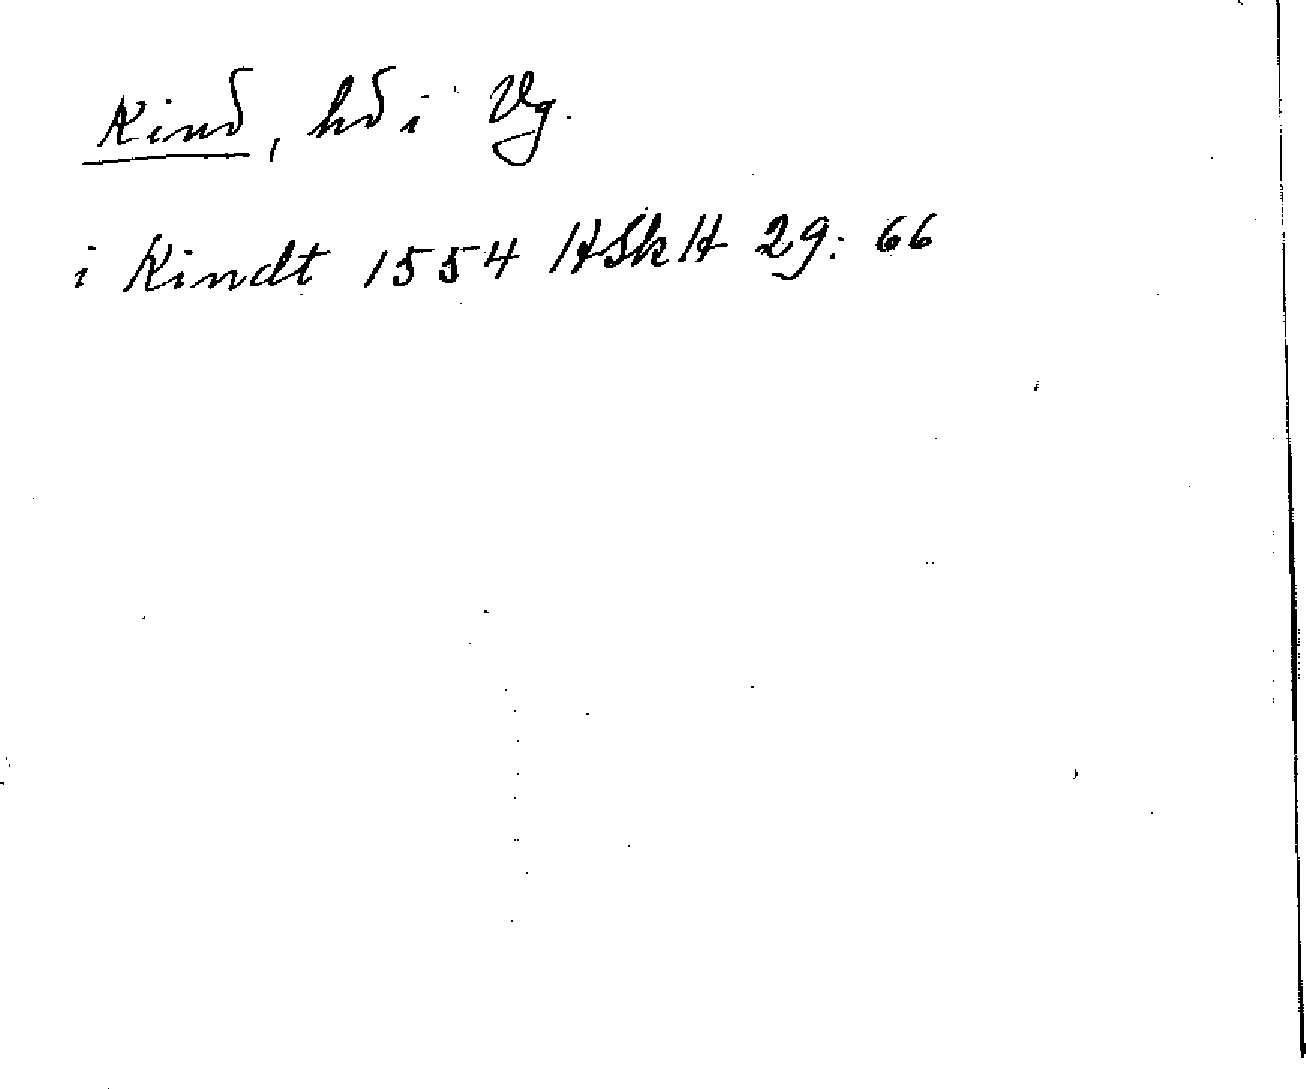 Kind, hd i Vg.
i Kindt 1554 HSkH 29: 66